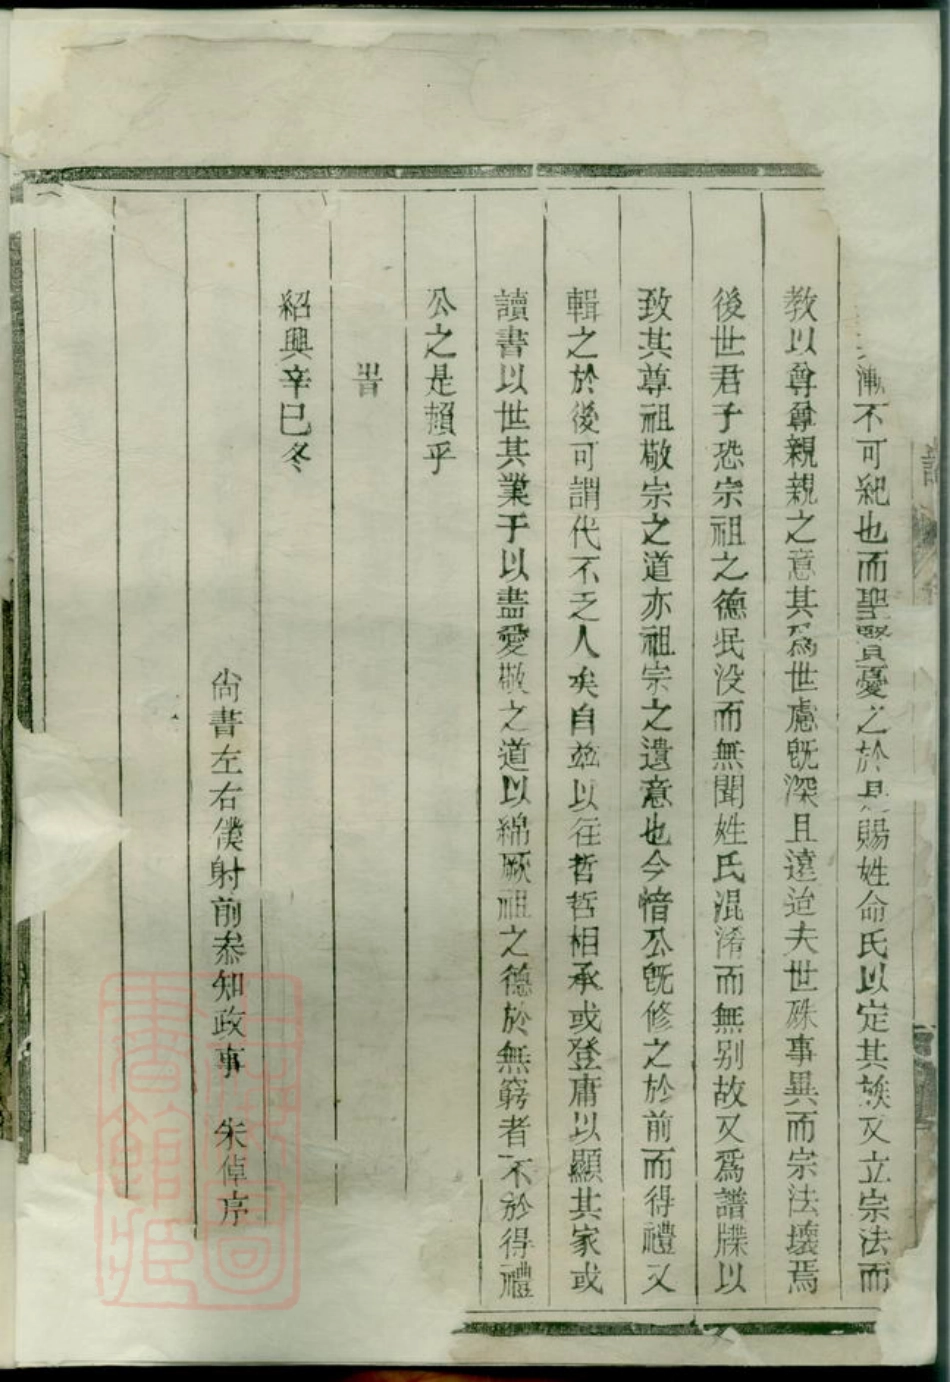 漸不可紀也而聖賢憂之於是賜姓命氏以定其族又立宗法而
教以尊尊親親之意其爲世慮旣深且遠迨夫世殊事異而宗法壞焉
後世君子恐宗祖之德泯没而無聞姓氏混淆而無别故又爲譜牒以
致其尊祖敬宗之道亦祖宗之遺意也今愔公旣修之於前而得禮又
輯之於後可謂代不乏人矣自玆以往哲哲相承或登庸以顯其家或
讀書以世其業于以盡愛敬之道以綿厥祖之德於無窮者不於得禮
公之是頼乎
旹
紹興辛巳冬
尚書左右僕射前叅知政事 朱倬序